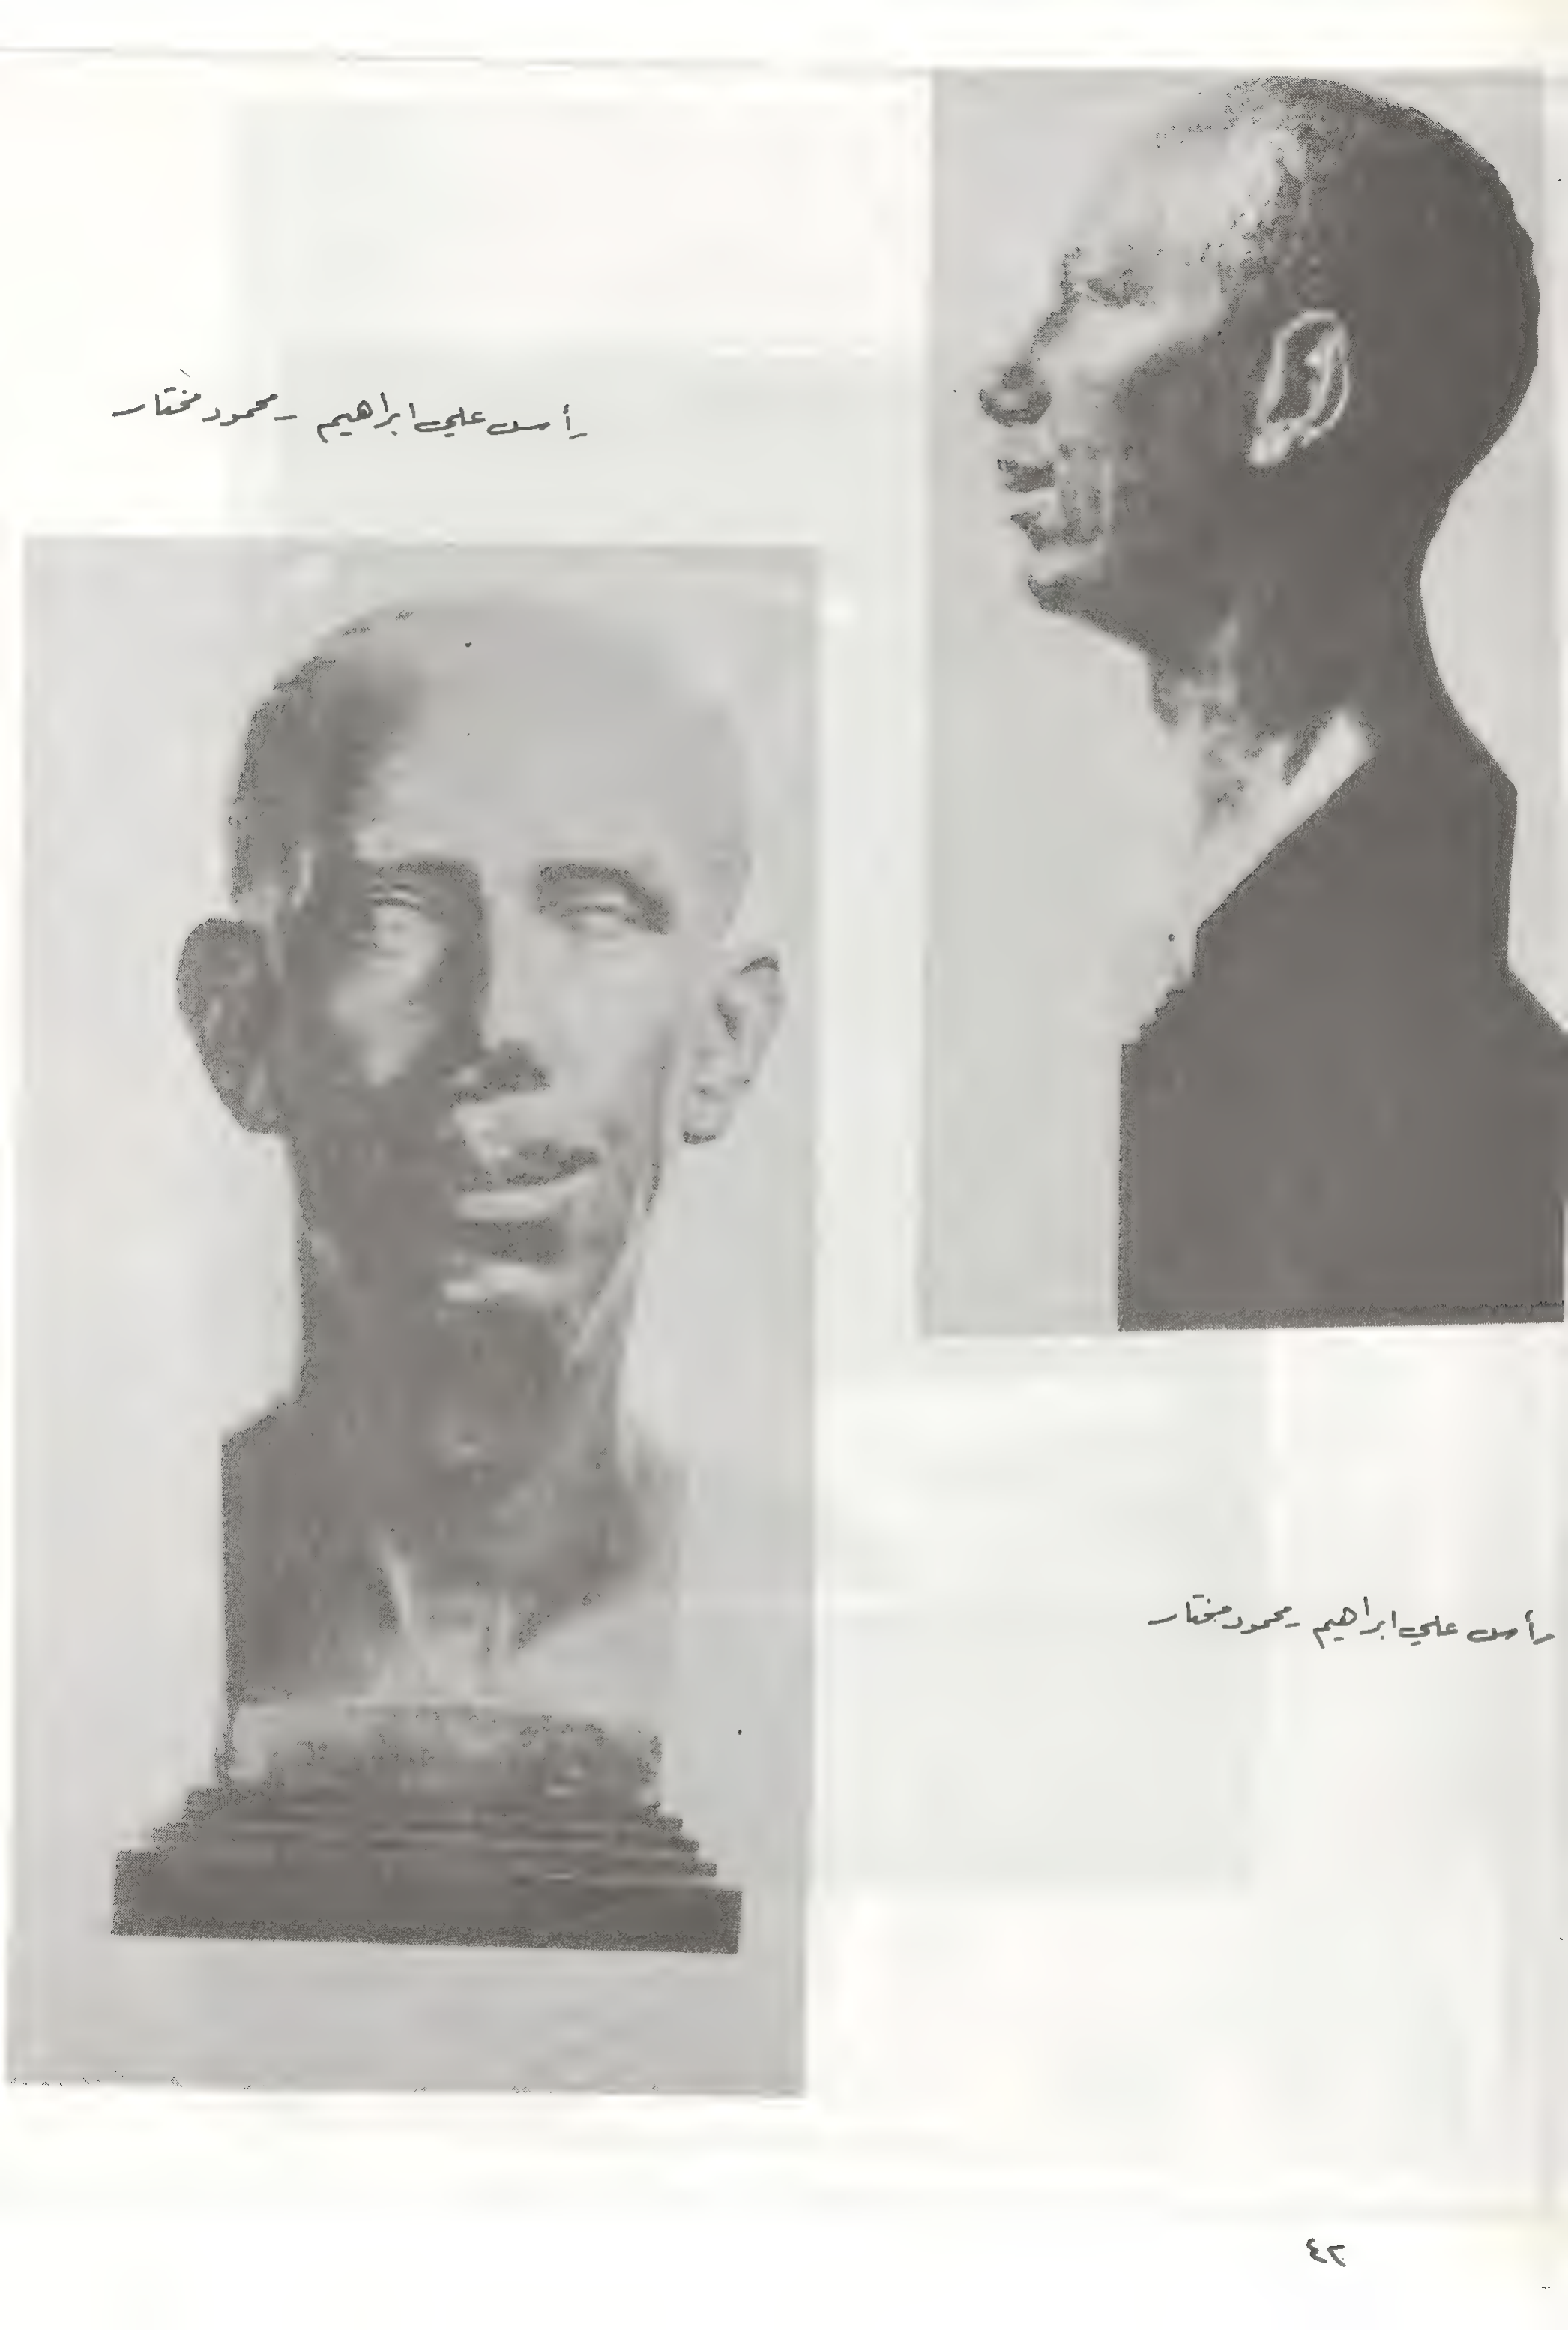 رأس علي ابراهيم - محمود مختار
رأس علي ابراهيم - محمود مختار
٤٢